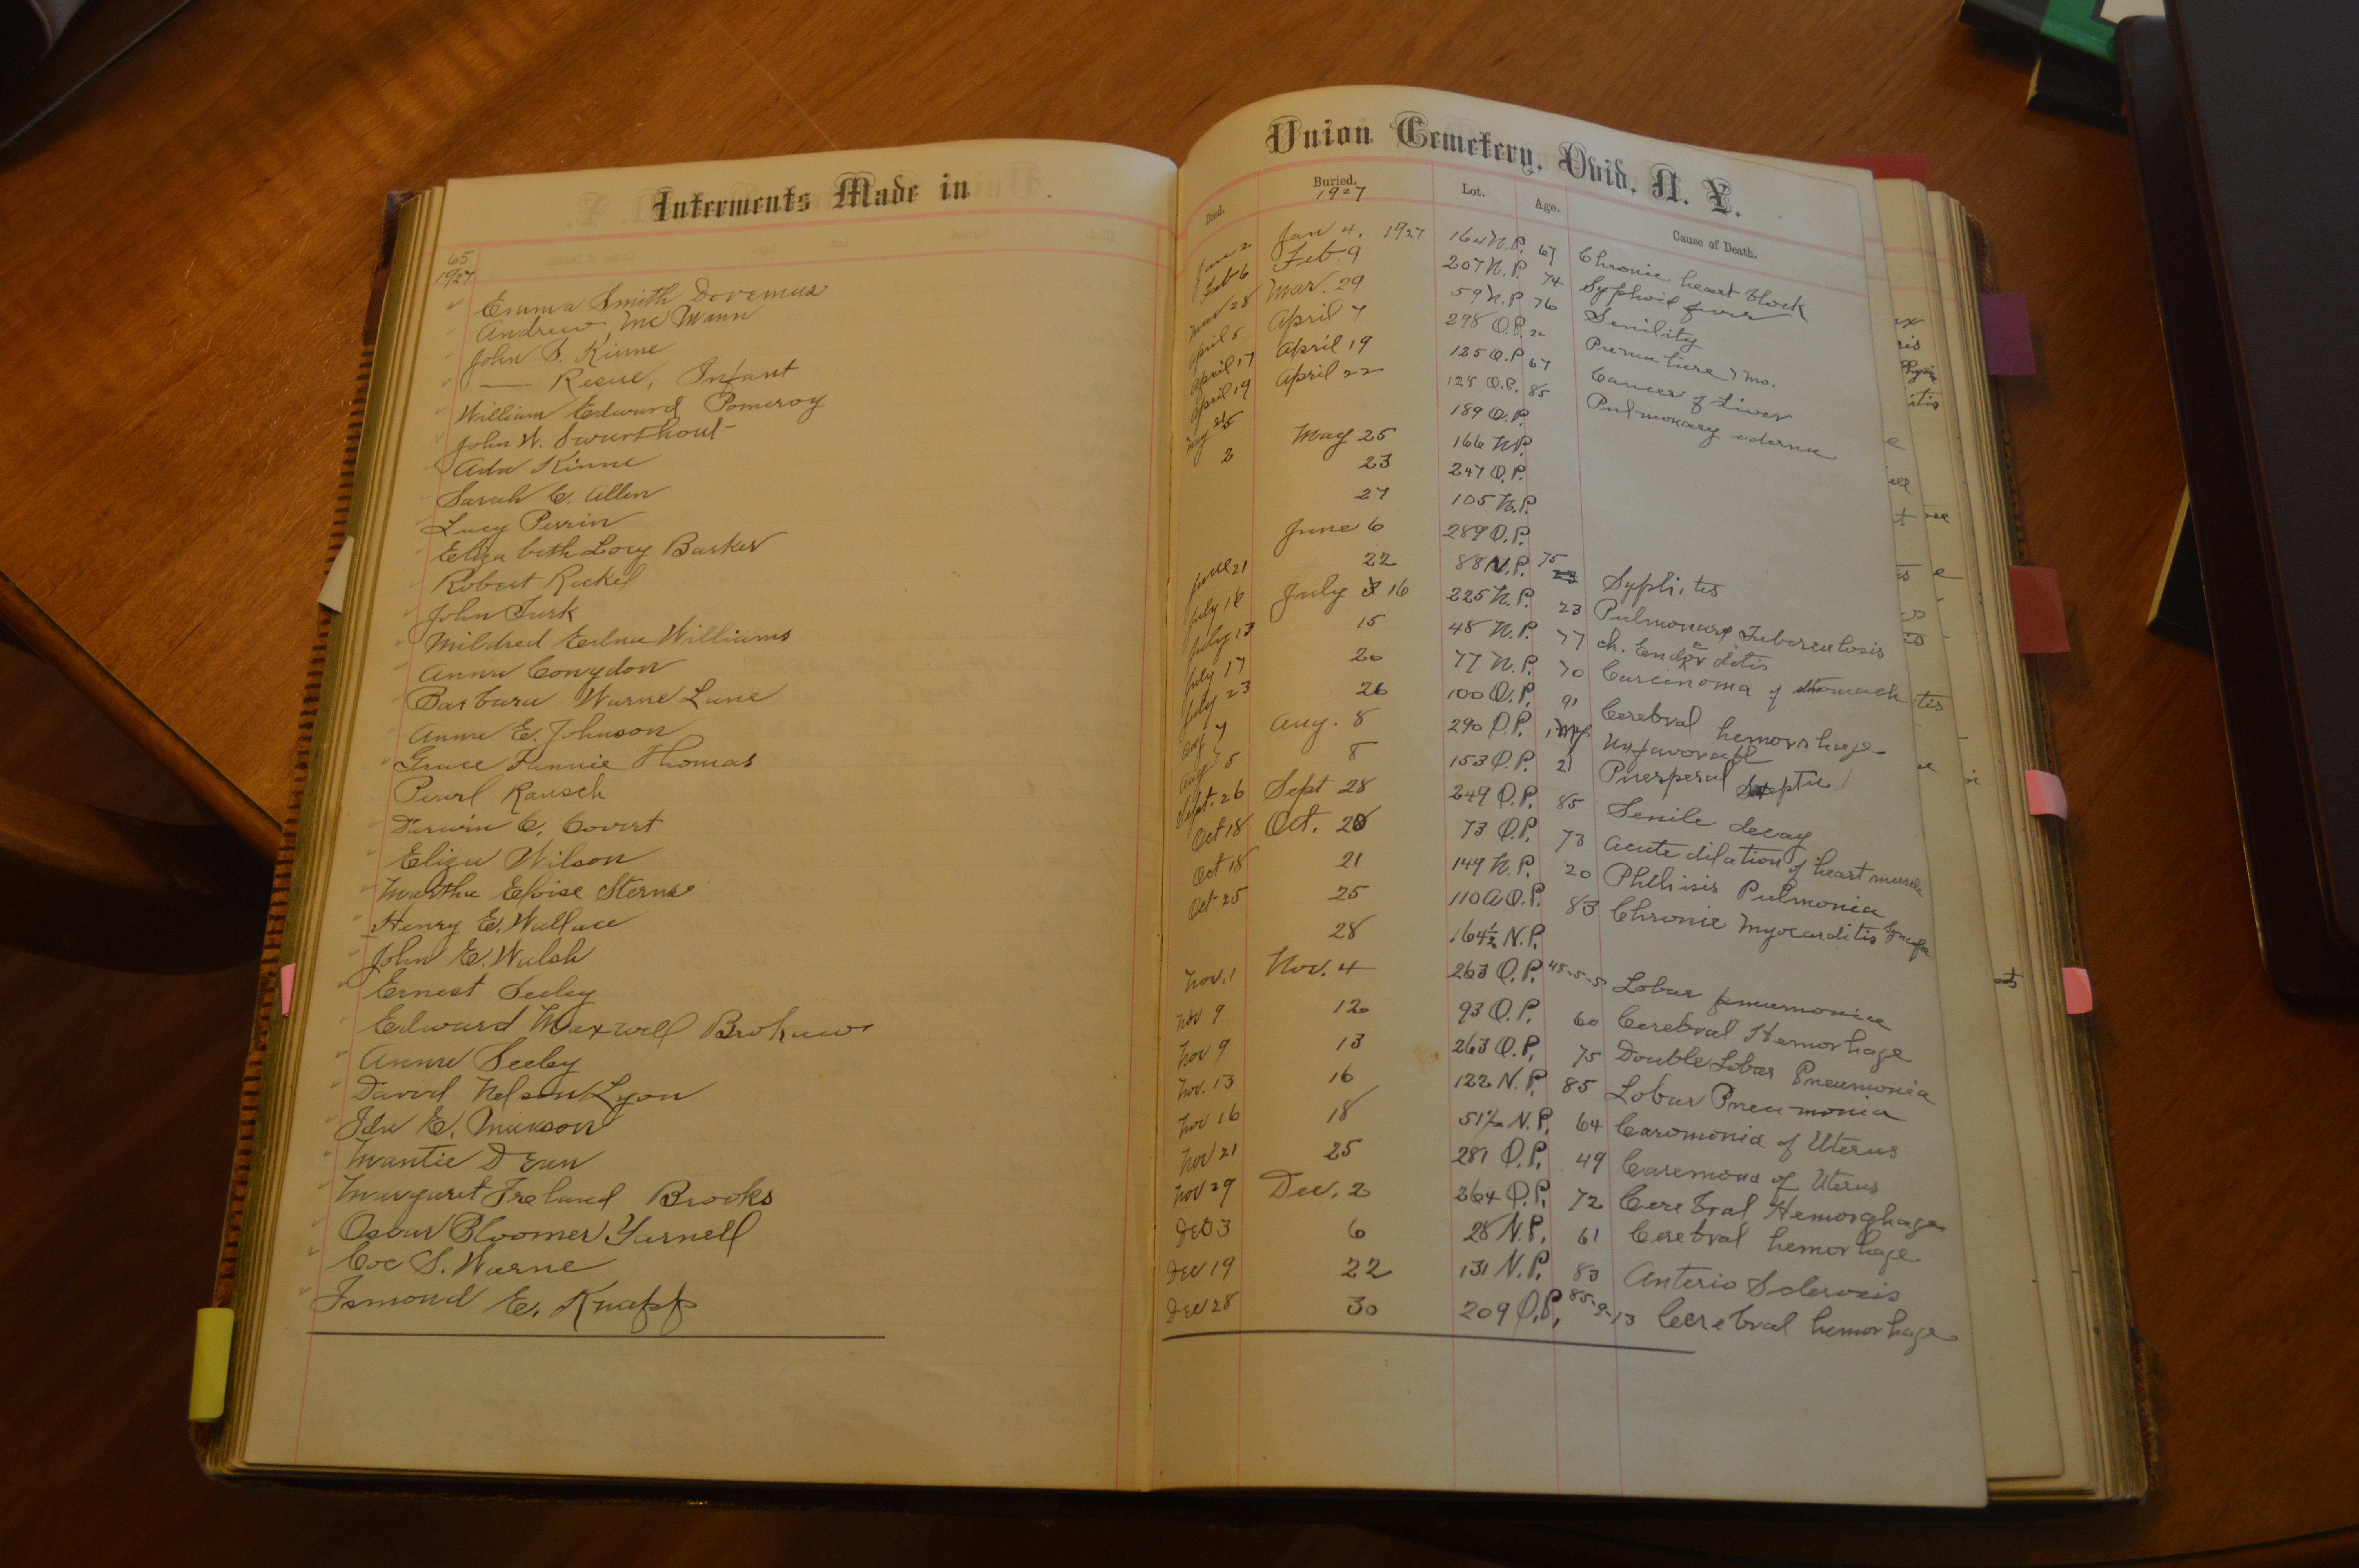 Interments Made in
65
1927
Emma Smith Doremus
Andrew Mc Mann
John S. Kinne
— Infant
William Edward Pomeroy
John W. Swarthout
Ada Kinne
Sarah C. Allen
Lucy Perrin
Elizabeth Barker
Robert
John Turk
Mildred Edna Williams
Anna Congdon
Barbara Warne Lane
Anna E. Johnson
Grace Fannie Thomas
Pearl Rausch
C. Covert
Eliza Wilson
Martha Eloise Sterns
Henry E. Wallace
John E. Walsh
Ernest Seeley
Edward Maxwell Brokaw
Anna Seeley
David Nelson Lyon
Ida E. Munson
Mantie
Margaret Ireland Brooks
Oscar Bloomer Yarnell
Coe S. Warne
E. Knapp
Union Cemetery, Ovid, N. Y.
Died. Buried. Lot. Age. Cause of Death.
1927
Jan 2 Jan 4, 1927 164 N.P. 67 Chronic heart block
Feb 6 Feb. 9 207 N.P. 74 Typhoid fever
Mar 28 Mar. 29 59 N.P. 76 Senility
April 5 April 7 298 O.P. Premature 7 mo.
April 17 April 19 125 O.P. 67 Cancer of Liver
April 19 April 22 128 O.P. 85 Pulmonary edema
May 189 O.P.
2 May 25 166 N.P.
23 247 O.P.
27 105 N.P.
June 6 289 O.P.
June 21 22 88 N.P. 75 Syphlites
July 16 July 16 225 N.P. 23 Pulmonary Tuberculosis
July 13 15 48 N.P. 77 ch.
July 17 20 77 N.P. 70 Carcinoma of stomach
July 23 26 100 O.P. 91 Cerebral hemorrhage
Aug 7 Aug. 8 290 O.P.
Aug 5 8 153 O.P. 21 Puerperal Septic
Sept. 26 Sept 28 249 O.P. 85 Senile decay
Oct 18 Oct. 20 73 O.P. 73 Acute dilation of heart muscle
Oct 18 21 149 N.P. 20 Phthisis Pulmonia
Oct 25 25 110 A O.P. 83 Chronic Myocarditis
28 164½ N.P.
Nov. 1 Nov. 4 263 O.P. 48-5-5 Lobar pneumonia
Nov 9 12 93 O.P. 60 Cerebral Hemorhage
Nov 9 13 263 O.P. 75 Double Lobar Pneumonia
Nov. 13 16 122 N.P. 85 Lobar Pneumonia
Nov 16 18 51½ N.P. 64 Caromonia of Uterus
Nov 21 25 281 O.P. 49 Caremona of Uterus
Nov 29 Dec. 2 264 O.P. 72 Cerebral Hemorghage
Dec 3 6 28 N.P. 61 Cerebral hemorhage
Dec 19 22 131 N.P. 83 Anterio Sclerosis
Dec 28 30 209 O.P. 85-9-13 Cerebral hemorhage